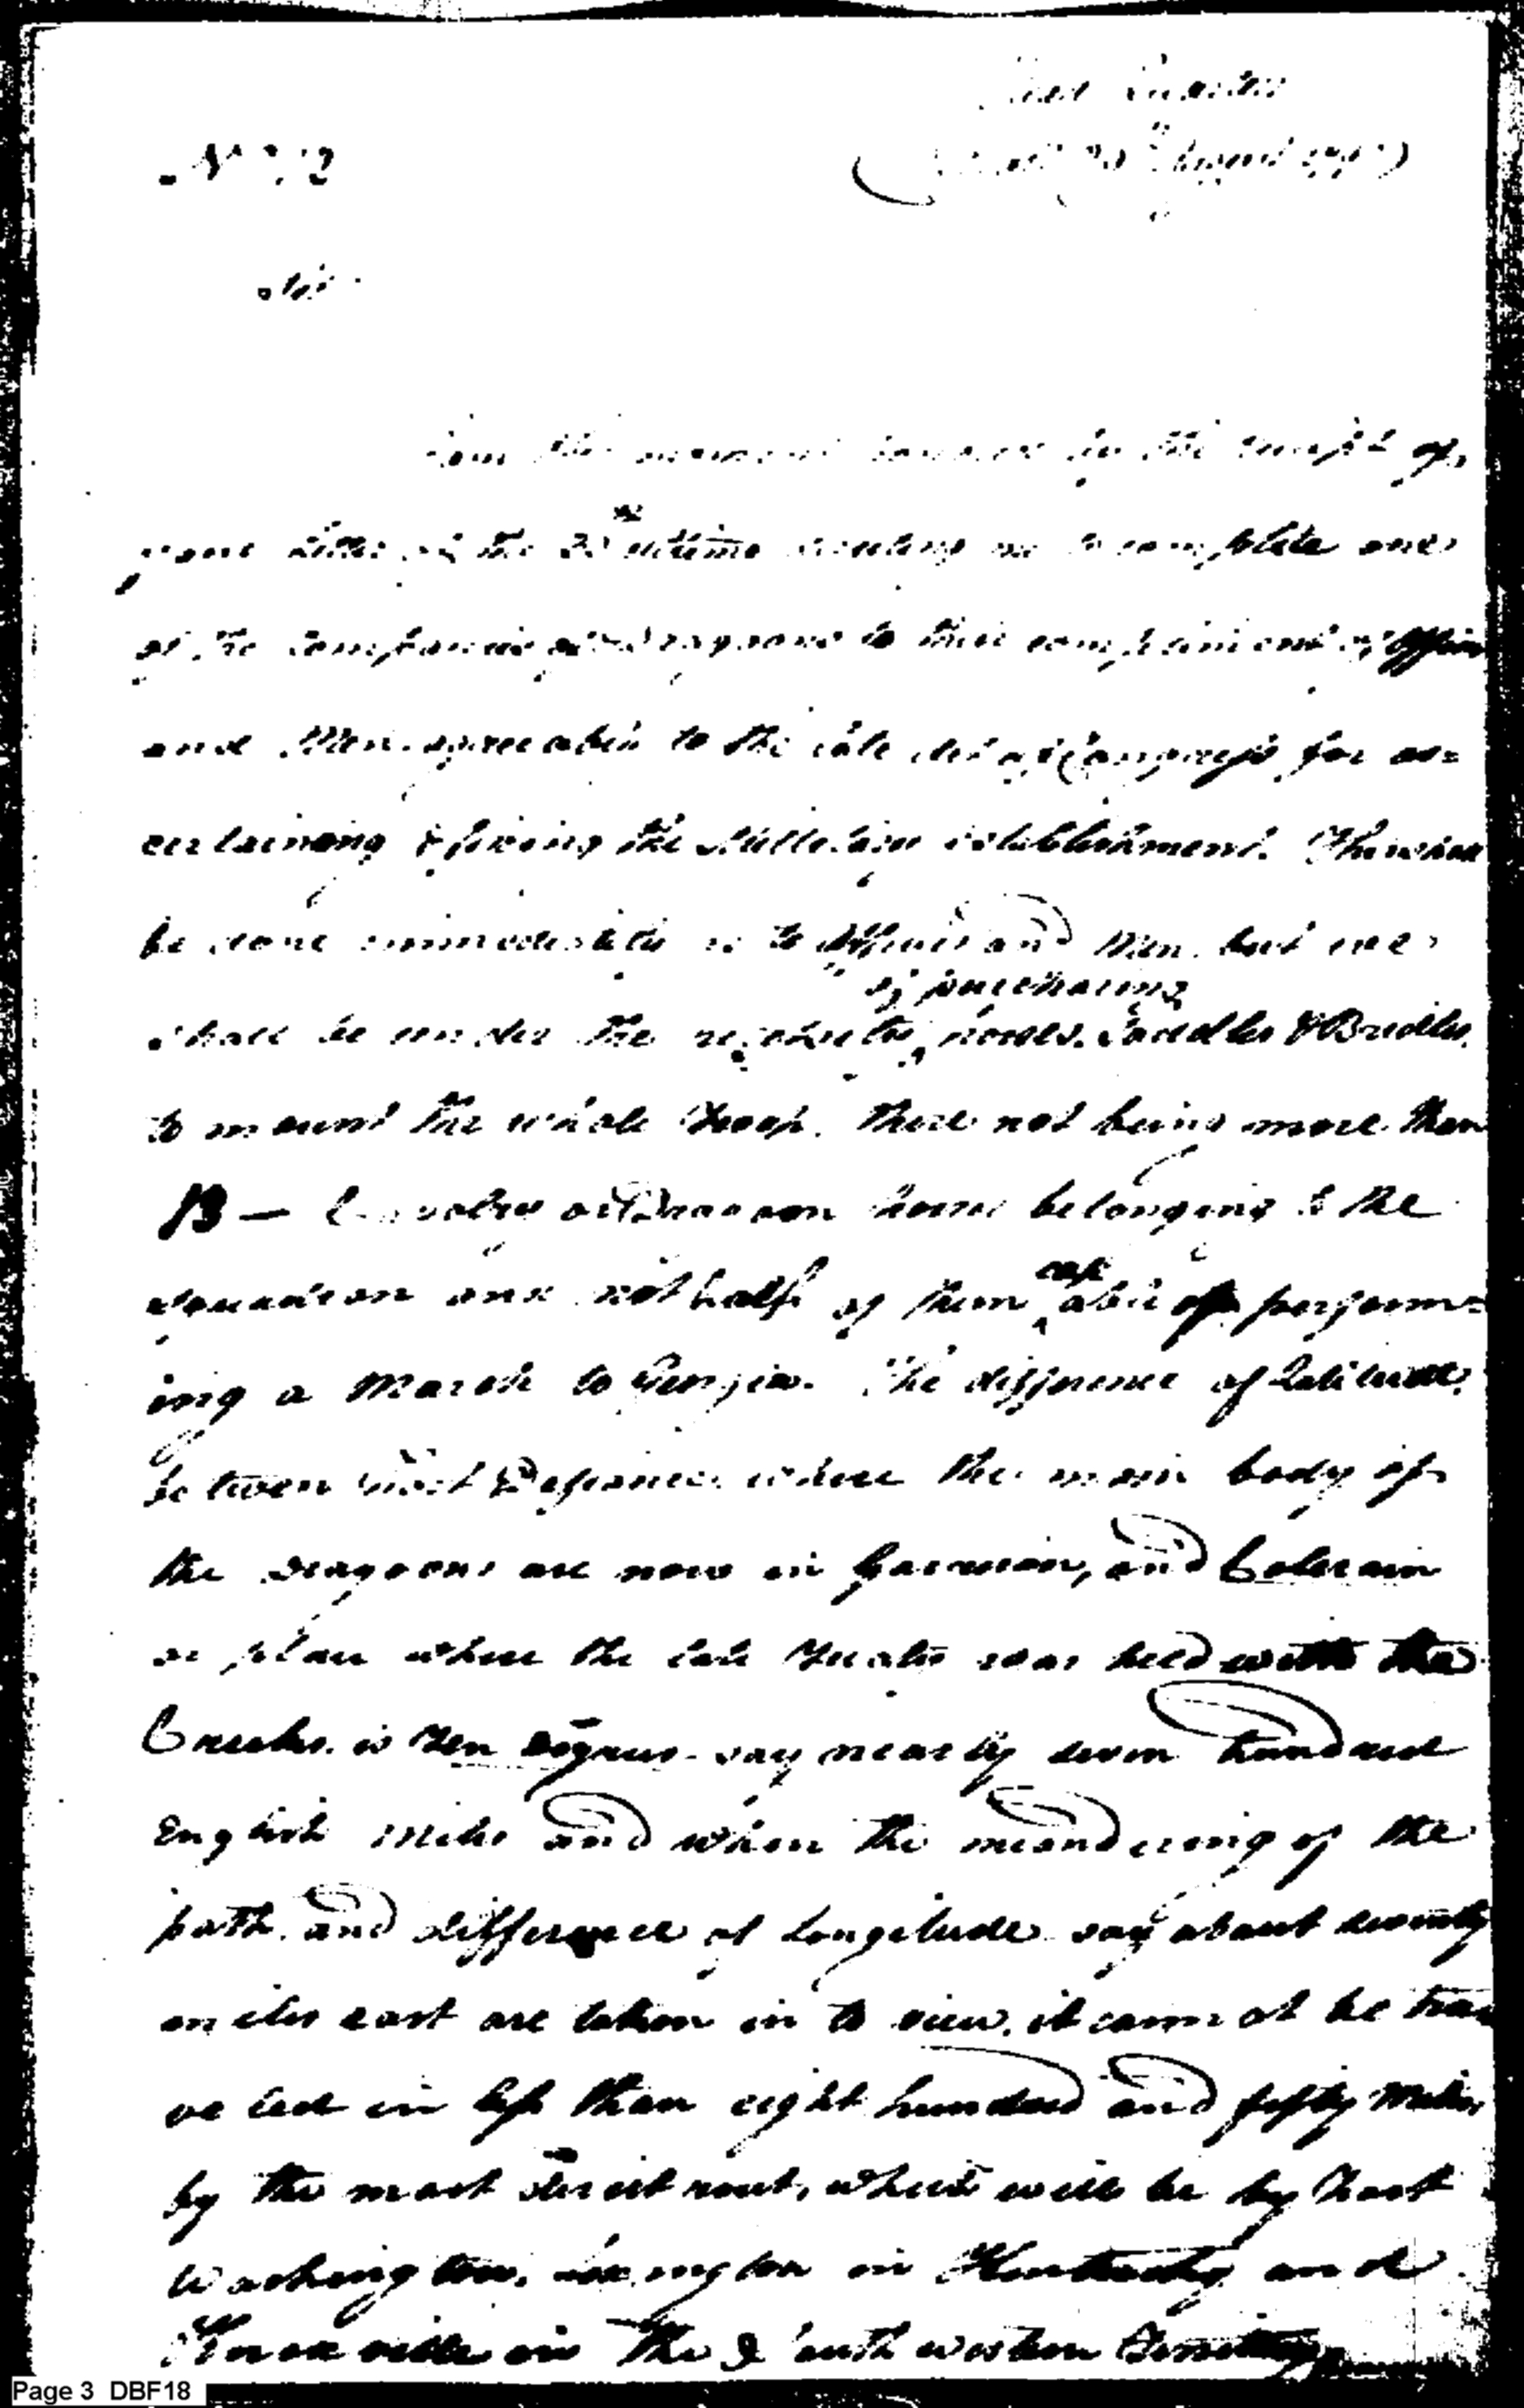 Head Quarters
Sir
this moment honored by the receipt of
your letter of the ultimo directing me to complete one
of the Companies of Dragoons to their compliment of Officers
and Men agreeable to the late Act of Congress for as=
certaining & fixing the Military establishment. This shall
be done immediately as to Officers and Men. but we
of purchasing
shall be under the necessity horses. Saddles & Bridles
to mount the whole troop. there not being more than
13 — Cavalry or Dragoon horses belonging to the
squadron and not half of them
cap
able of perform=
ing a March to Georgia. The difference of Latitude
between Fort Defiance where the main body of
the dragoons are now in Garrison, and Colerain
or place where the late Treaty was held with the
Creeks. is Ten Degrees say nearly seven hundred
English Miles and when the meandering of the
path and difference of Longitude say about seventy
miles east are taken in to view, it cannot be tra
veled in less than eight hundred and fifty Miles,
by the most direct rout, which will be by Fort
Washington, Lexington in Kentucky and
Knoxville in the South western Territory
Page 3 DBF18